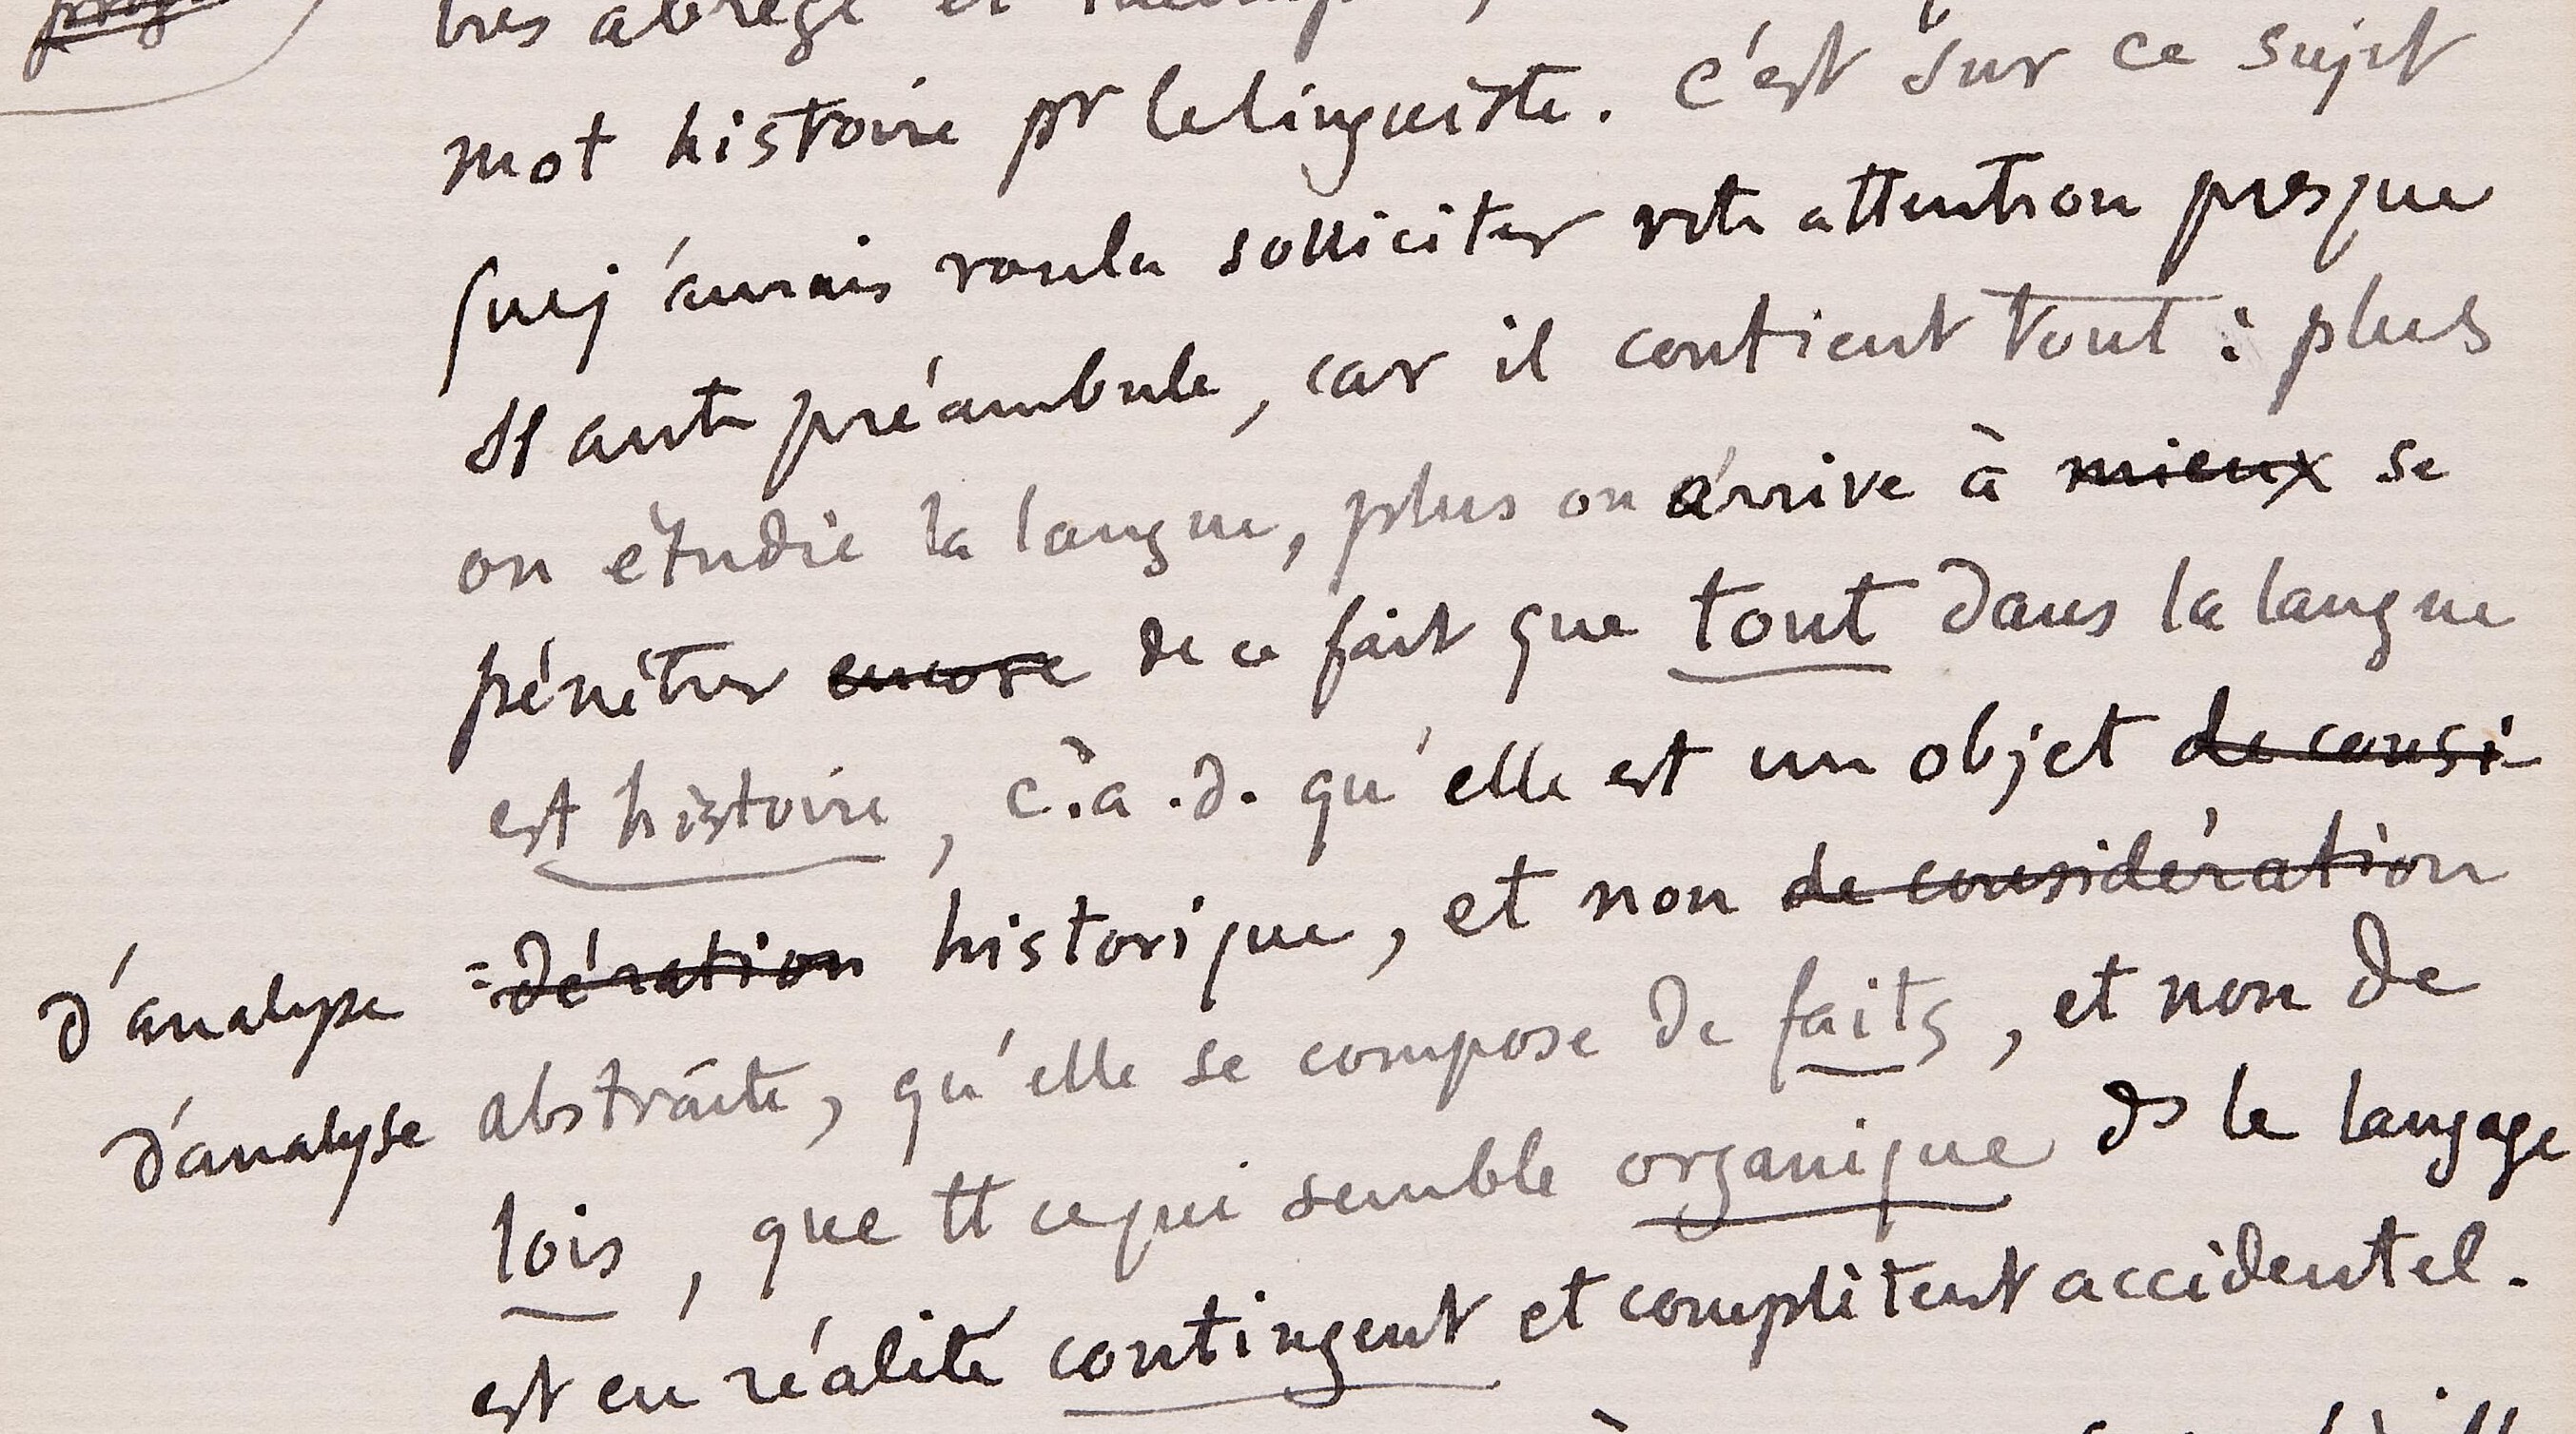 très abrégé et
mot histoire pr le linguiste. C'est sur ce sujet
que j'aurais voulu solliciter votr attention presque
ss autr préambule, car il contient tout : plus
on étudie la langue, plus on arrive à mieux se
pénétrer encore de ce fait que tout dans la langue
est histoire, c.à.d. qu'elle est un objet de consi-
d'analyse =dération historique, et non de considération
d'analyse abstraite, qu'elle se compose de faits, et non de
lois, que tt ce qui semble organique ds le langage
est en réalité contingent et complètent accidentel.